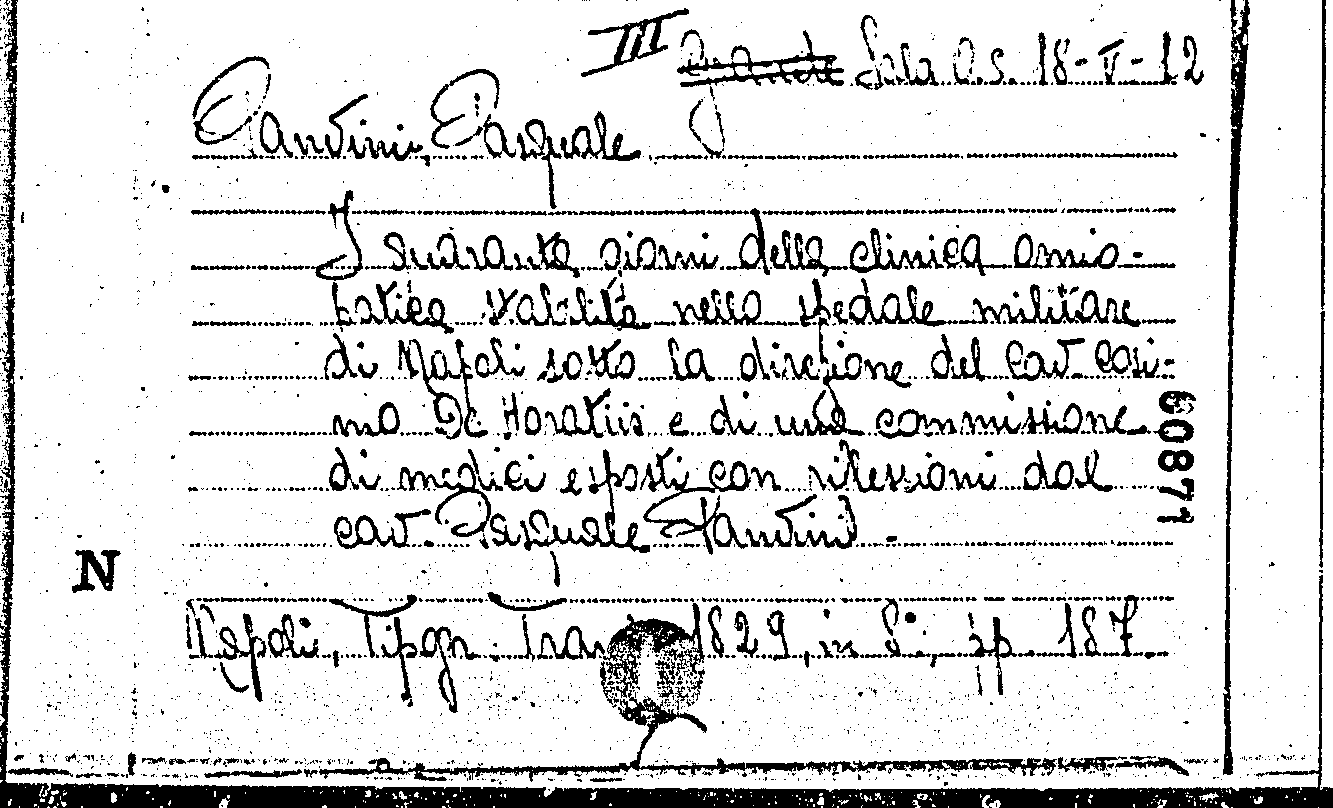 III Grande Sala O.S. 18-V-12
Panvini, Pasquale
I quaranta giorni della clinica omio-
patica stabilita nello spedale militare
di Napoli sotto la direzione del cav. Cosi-
mo De Horatiis e di una commissione
di medici esposti con riflessioni dal
cav. Pasquale Panvini.
60871
N
Napoli, Tipogr. 1829, in 8°, pp. 187.